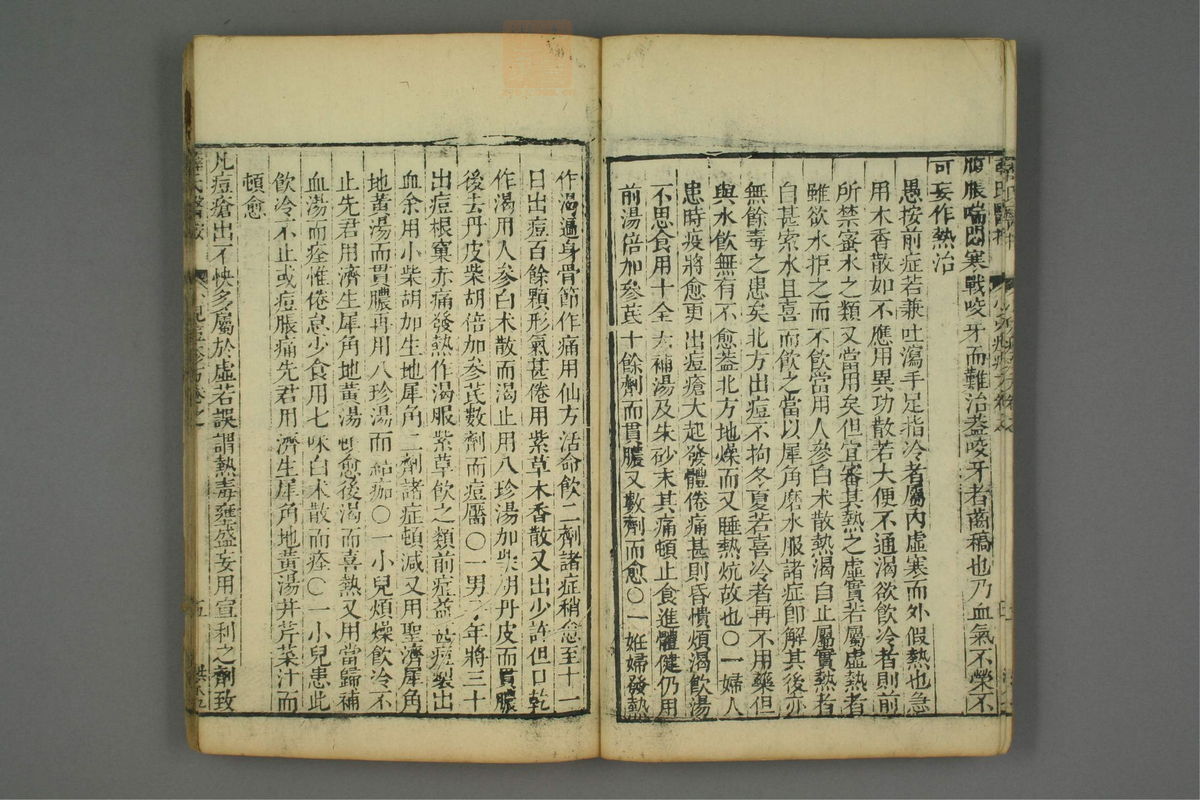 腹脹喘悶寒戰咬牙而難治葢咬牙者齒稿也乃血氣不榮不
可妄作熱治
愚按前症若兼吐瀉手足指冷者屬內虛寒而外假熱也急
用木香散如不應用異功散若大便不通渴欲飲冷者則前
所禁蜜水之類又當用矣但宜審其熱之虛實若屬虛熱者
雖欲水拒之而不飲當用人參白术散熱渴自止屬實熱者
自甚索水且喜而飲之當以犀角磨水服諸症卽解其後亦
無餘毒之患矣北方出痘不拘冬夏若喜冷者再不用藥但
與水飲無有不愈葢北方地燥而又睡熱炕故也〇一婦人
患時疫將愈更出痘瘡大起發體倦痛甚則昏憒煩渴飲湯
不思食用十全大補湯及朱砂末其痛頓止食進體健仍用
前湯倍加參芪十餘劑而貫膿又數劑而愈〇一妊婦發熱
作渴遍身骨節作痛用仙方活命飲二劑諸症稍愈至十一
日出痘百餘顆形氣甚倦用紫草木香散又出少許但口乾
作渴用人參白术散而渴止用八珍湯加柴胡丹皮而貫膿
後去丹皮柴胡倍加參芪數劑而痘靨〇一男子年將三十
出痘根窠赤痛發熱作渴服紫草飲之類前症益甚痘裂出
血余用小柴胡加生地犀角二劑諸症頓減又用聖濟犀角
地黃湯而貫膿再用八珍湯而結痂〇一小兒煩燥飲冷不
止先君用濟生犀角地黃湯頓愈後渴而喜熱又用當歸補
血湯而痊惟倦怠少食用七味白术散而痊〇一小兒患此
飲冷不止或痘脹痛先君用濟生犀角地黃湯并芹菜汁而
頓愈
凡痘瘡出不快多屬於虛若誤謂熱毒壅盛妄用宣利之劑致